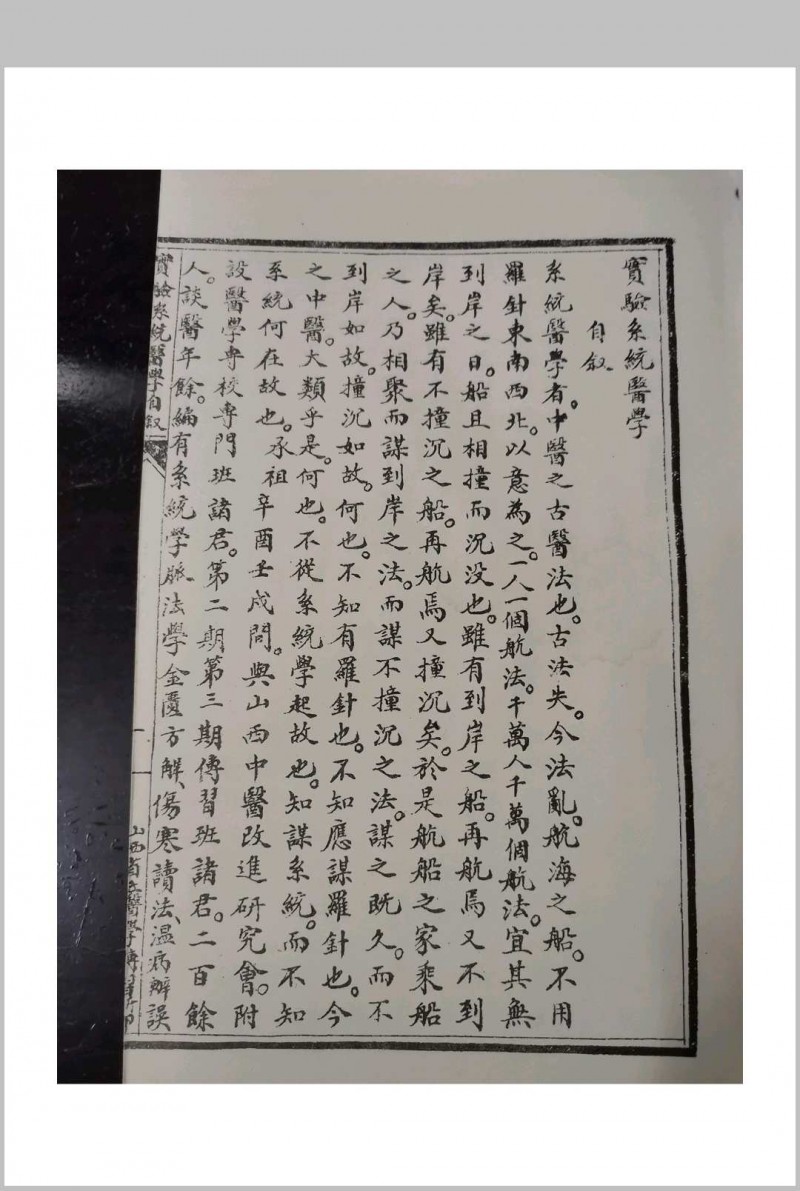 實驗系統醫學
自叙
系統醫學者。中醫之古醫法也。古法失。今法亂。航海之船。不用
羅針東南西北。以意為之。一人一個航法。千萬人千萬個航法。宜其無
到岸之日。船且相撞而沉没也。雖有到岸之船。再航焉又不到
岸矣。雖有不撞沉之船。再航焉又撞沉矣。於是航船之家乘船
之人。乃相聚而謀到岸之法。而謀不撞沉之法。謀之既久。而不
到岸如故。撞沉如故。何也。不知有羅針也。不知應謀羅針也。今
之中醫。大類乎是。何也。不從系統學起故也。知謀系統。而不知
系統何在故也。承祖辛酉壬戌間。與山西中醫改進研究會。附
設醫學専校専門班諸君。第二期第三期傳習班諸君。二百餘
人。談醫年餘。編有系統學、脈法學金匱方解、傷寒讀法、温病辦誤
實驗系統醫學自叙
一
山西省立醫學傳習所印